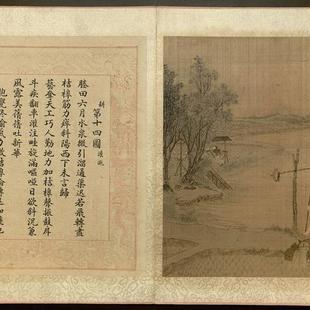 耕 第十四圖 灌溉
塍田六月水泉微引溜通渠迅若飛轉盡
桔槔筋力瘁斜陽西下未言歸
藝天工巧人勤地力加桔槔聲振鼓戽
斗疾翻車灌注畦旋滿嘔啞日欲斜沉
風露美蓓蕾吐新華